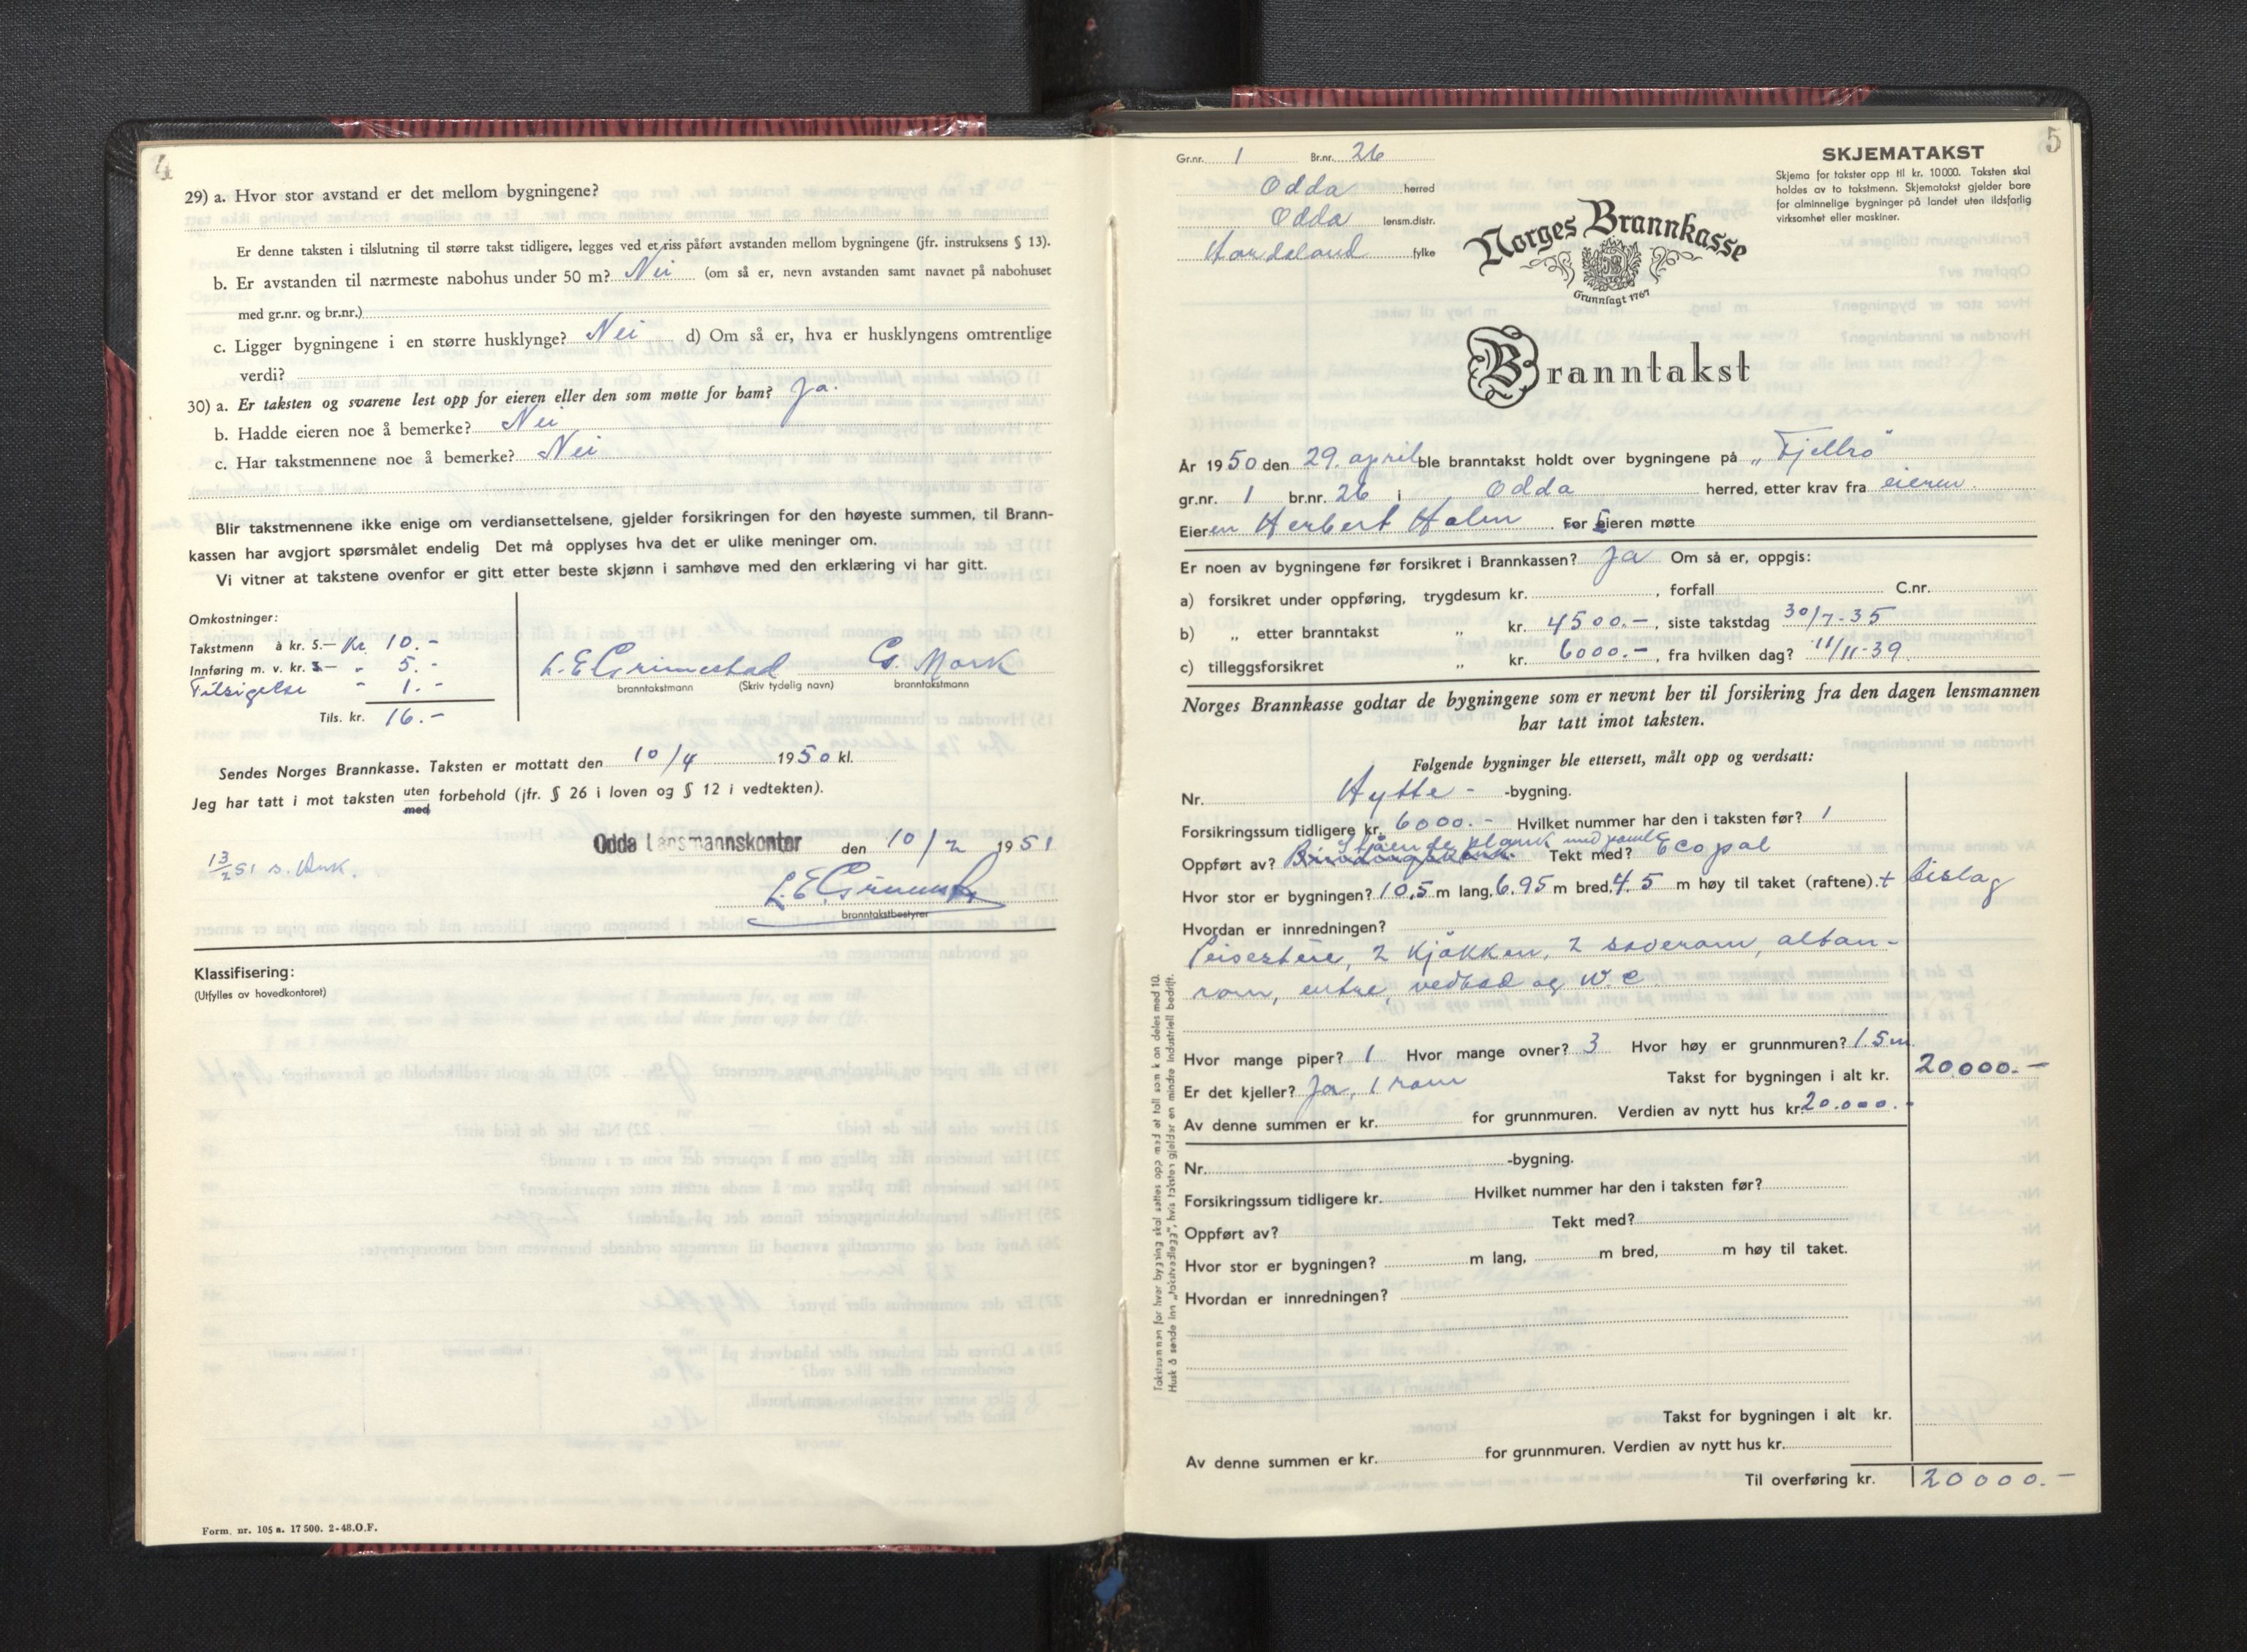 4
29) a. Hvor stor avstand er det mellom bygningene?
Er denne taksten i tilslutning til større takst tidligere, legges ved et riss påført avstanden mellom bygningene (jfr. instruksens § 13).
b. Er avstanden til nærmeste nabohus under 50 m? Nei (om så er, nevn avstanden samt navnet på nabohuset
med gr.nr. og br.nr.)
c. Ligger bygningene i en større husklynge? Nei d) Om så er, hva er husklyngens omtrentlige
verdi?
30) a. Er taksten og svarene lest opp for eieren eller den som møtte for ham? Ja.
b. Hadde eieren noe å bemerke? Nei
c. Har takstmennene noe å bemerke? Nei
Blir takstmennene ikke enige om verdiansettelsene, gjelder forsikringen for den høyeste summen, til Brann-
kassen har avgjort spørsmålet endelig Det må opplyses hva det er ulike meninger om.
Vi vitner at takstene ovenfor er gitt etter beste skjønn i samhøve med den erklæring vi har gitt.
Omkostninger:
Takstmenn à kr. 5.— Kr. 10.-
Innføring m. v. kr. 3.— " 5.-
Tilsigelse " 1.-
Tils. kr. 16.-
L. E. Grimestad G. Mork
branntakstmann (Skriv tydelig navn) branntakstmann
Sendes Norges Brannkasse. Taksten er mottatt den 10/4 1950 kl.
Jeg har tatt i mot taksten uten med forbehold (jfr. § 26 i loven og § 12 i vedtekten).
Odda Lensmannskontor den 10/2 1951
13/2 51 s.
branntakstbestyrer
Klassifisering:
(Utfylles av hovedkontoret)
Form. nr. 105 a. 17 500. 2-48. O.F.
5
Gr.nr. 1 Br.nr. 26
Odda herred
Odda lensm.distr.
Hordaland fylke
SKJEMATAKST
Skjema for takster opp til kr. 10000. Taksten skal
holdes av to takstmenn. Skjematakst gjelder bare
for alminnelige bygninger på landet uten ildsfarlig
virksomhet eller maskiner.
Norges Brannkasse
Grunnlagt 1767
Branntakst
År 1950 den 29. april ble branntakst holdt over bygningene på „Fjellro"
gr.nr. 1 br.nr. 26 i Odda herred, etter krav fra eieren.
Eieren Herbert Holm. For Eieren møtte
Er noen av bygningene før forsikret i Brannkassen? Ja Om så er, oppgis:
a) forsikret under oppføring, trygdesum kr. , forfall C.nr.
b) „ etter branntakst „ kr. 4500.-, siste takstdag 30/7-35
c) tilleggsforsikret „ kr. 6000.-, fra hvilken dag? 11/11-39
Norges Brannkasse godtar de bygningene som er nevnt her til forsikring fra den dagen lensmannen
har tatt imot taksten.
Følgende bygninger ble ettersett, målt opp og verdsatt:
Nr. Hytte - -bygning.
Forsikringssum tidligere kr. 6000.- Hvilket nummer har den i taksten før? 1
Oppført av? Stående plank med panel Tekt med? Ecopal
Hvor stor er bygningen? 10,5 m lang, 6.95 m bred, 4.5 m høy til taket (raftene). + bislag
Hvordan er innredningen?
Peisestue, 2 kjøkken, 2 soverom, altan-
rom, entre, vedbod og W.C.
Hvor mange piper? 1 Hvor mange ovner? 3 Hvor høy er grunnmuren? 1.5 m.
Er det kjeller? Ja, 1 rom Takst for bygningen i alt kr. 20.000.-
Av denne summen er kr. for grunnmuren. Verdien av nytt hus kr. 20.000.-
Nr. -bygning.
Forsikringssum tidligere kr. Hvilket nummer har den i taksten før?
Oppført av? Tekt med?
Hvor stor er bygningen? m lang, m bred, m høy til taket.
Hvordan er innredningen?
Takst for bygningen i alt kr.
Av denne summen er kr. for grunnmuren. Verdien av nytt hus kr.
Til overføring kr. 20000.-
Takstsummen for hver bygning skal settes opp med et tall som kan deles med 10.